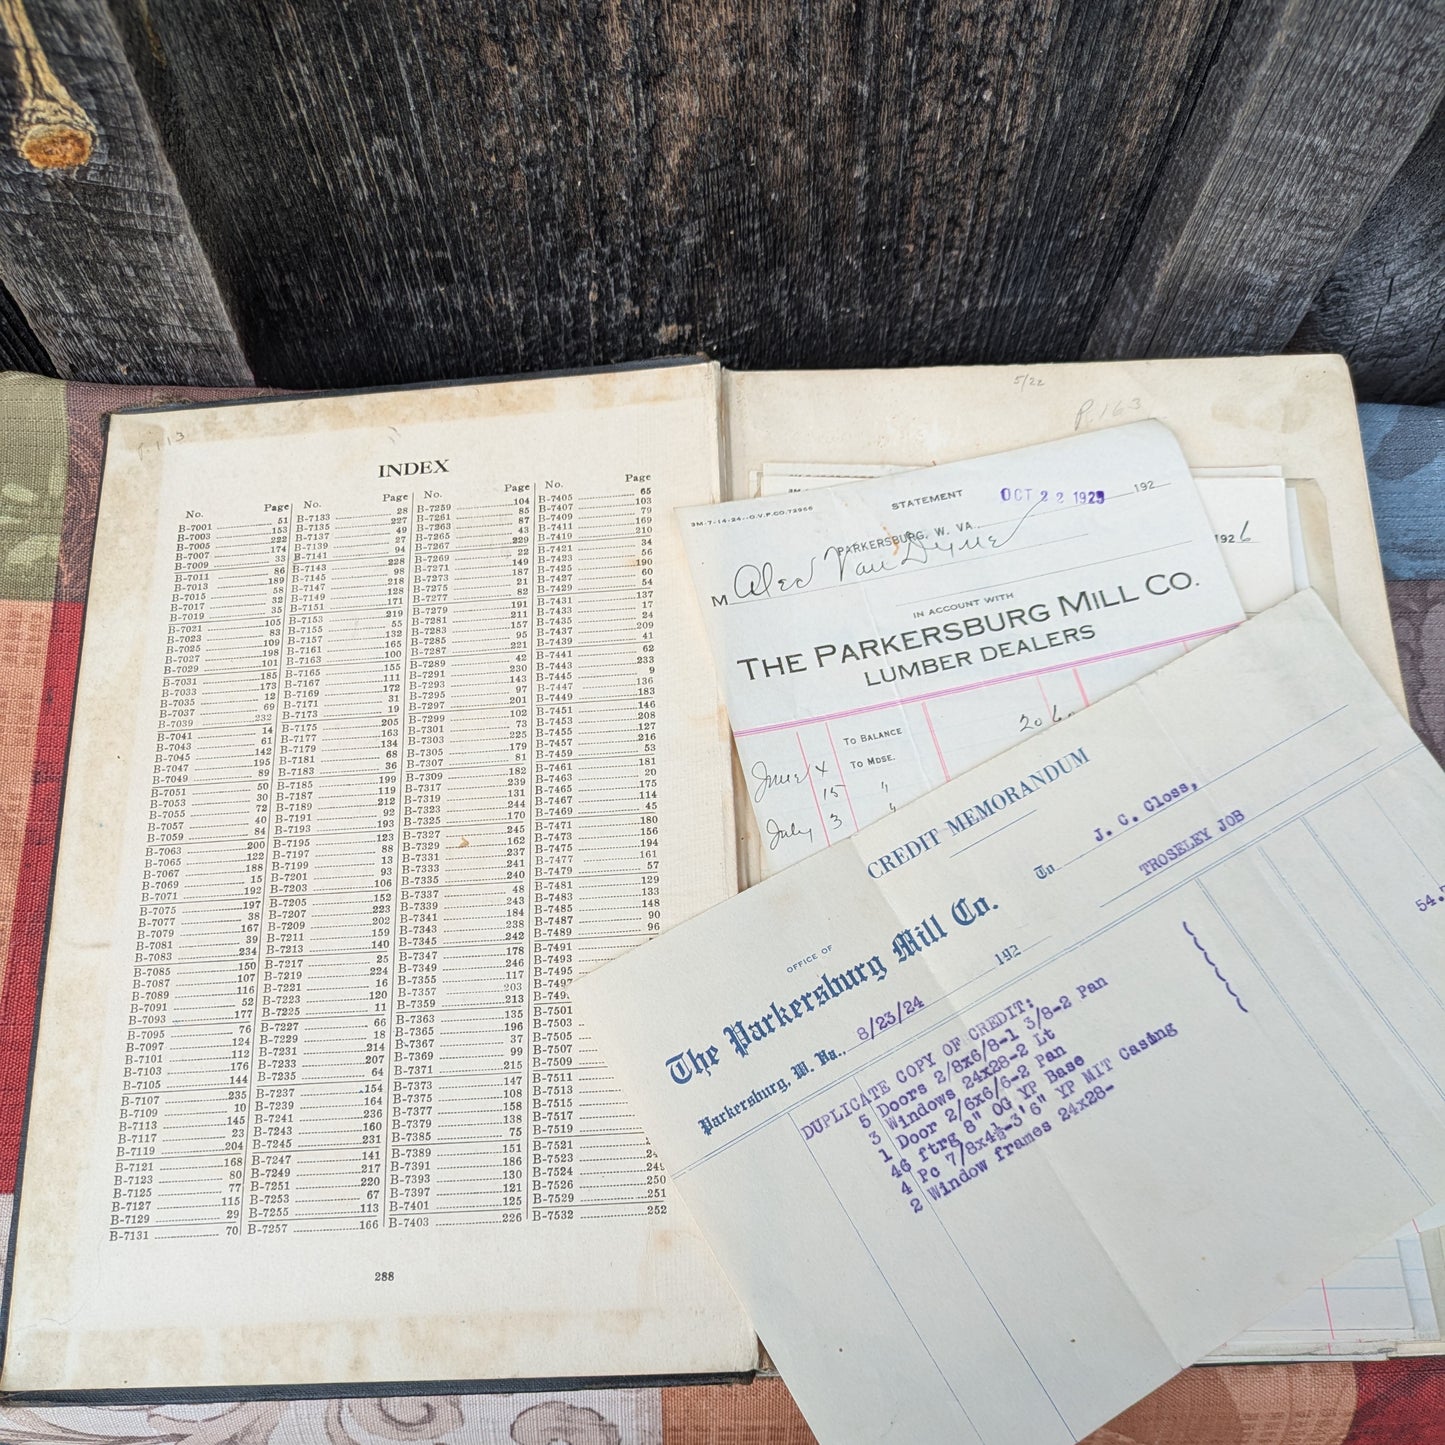 P. 113
INDEX
No. Page
B-7001 51
B-7003 153
B-7005 222
B-7007 174
B-7009 33
B-7011 86
B-7013 189
B-7015 58
B-7017 32
B-7019 35
B-7021 105
B-7023 83
B-7025 109
B-7027 198
B-7029 101
B-7031 185
B-7033 173
B-7035 12
B-7037 69
B-7039 232
B-7041 14
B-7043 61
B-7045 142
B-7047 195
B-7049 89
B-7051 50
B-7053 30
B-7055 72
B-7057 40
B-7059 84
B-7063 200
B-7065 122
B-7067 188
B-7069 15
B-7071 192
B-7075 197
B-7077 38
B-7079 167
B-7081 39
B-7083 234
B-7085 150
B-7087 107
B-7089 116
B-7091 52
B-7093 177
B-7095 76
B-7097 124
B-7101 112
B-7103 176
B-7105 144
B-7107 235
B-7109 10
B-7113 145
B-7117 23
B-7119 204
B-7121 168
B-7123 80
B-7125 77
B-7127 115
B-7129 29
B-7131 70
No. Page
B-7133 28
B-7135 227
B-7137 49
B-7139 27
B-7141 94
B-7143 228
B-7145 98
B-7147 218
B-7149 128
B-7151 171
B-7153 219
B-7155 55
B-7157 132
B-7161 165
B-7163 100
B-7165 155
B-7167 111
B-7169 172
B-7171 31
B-7173 19
B-7175 205
B-7177 163
B-7179 134
B-7181 68
B-7183 36
B-7185 199
B-7187 119
B-7189 212
B-7191 92
B-7193 193
B-7195 123
B-7197 88
B-7199 13
B-7201 93
B-7203 106
B-7205 152
B-7207 223
B-7209 202
B-7211 159
B-7213 140
B-7217 25
B-7219 224
B-7221 16
B-7223 120
B-7225 11
B-7227 66
B-7229 18
B-7231 214
B-7233 207
B-7235 64
B-7237 154
B-7239 164
B-7241 236
B-7243 160
B-7245 231
B-7247 141
B-7249 217
B-7251 220
B-7253 67
B-7255 113
B-7257 166
No. Page
B-7259 104
B-7261 85
B-7263 87
B-7265 43
B-7267 229
B-7269 22
B-7271 149
B-7273 187
B-7275 21
B-7277 82
B-7279 191
B-7281 211
B-7283 157
B-7285 95
B-7287 221
B-7289 42
B-7291 230
B-7293 143
B-7295 97
B-7297 201
B-7299 102
B-7301 73
B-7303 225
B-7305 179
B-7307 81
B-7309 182
B-7317 239
B-7319 131
B-7323 244
B-7325 170
B-7327 245
B-7329 162
B-7331 237
B-7333 241
B-7335 240
B-7337 48
B-7339 243
B-7341 184
B-7343 238
B-7345 242
B-7347 178
B-7349 246
B-7355 117
B-7357 203
B-7359 213
B-7363 135
B-7365 196
B-7367 37
B-7369 99
B-7371 215
B-7373 147
B-7375 108
B-7377 158
B-7379 138
B-7385 75
B-7389 151
B-7391 186
B-7393 130
B-7397 121
B-7401 125
B-7403 226
No. Page
B-7405 65
B-7407 103
B-7409 79
B-7411 169
B-7419 210
B-7421 34
B-7423 56
B-7425 190
B-7427 60
B-7429 54
B-7431 137
B-7433 17
B-7435 24
B-7437 209
B-7439 41
B-7441 62
B-7443 233
B-7445 9
B-7447 136
B-7449 183
B-7451 146
B-7453 208
B-7455 127
B-7457 216
B-7459 53
B-7461 181
B-7463 20
B-7465 175
B-7467 114
B-7469 45
B-7471 180
B-7473 156
B-7475 194
B-7477 161
B-7479 57
B-7481 129
B-7483 133
B-7485 148
B-7487 90
B-7489 96
B-7491
B-7493
B-7495
B-749
B-7501
B-7503
B-7505
B-7507
B-7509
B-7511
B-7513
B-7515
B-7517
B-7519
B-7521
B-7523
B-7524 24
B-7526 250
B-7529 251
B-7532 252
288
5/22
P. 163
3M-7-14-24--O.V.P.CO.72966
STATEMENT
OCT 22 1925 192
PARKERSBURG, W. VA.
M Alex Van Dyne
IN ACCOUNT WITH
THE PARKERSBURG MILL CO.
LUMBER DEALERS
TO BALANCE 20 60
June 4 TO MDSE.
15 "
July 3 "
1926
CREDIT MEMORANDUM
OFFICE OF
The Parkersburg Mill Co.
To J. C. Closs,
TROSELEY JOB
Parkersburg, W. Va., 8/23/24 192
54.
DUPLICATE COPY OF CREDIT:
5 Doors 2/8x6/8-1 3/8-2 Pan
3 Windows 24x28-2 Lt
1 Door 2/6x6/6-2 Pan
46 ftrg 8" OG YP Base
4 Pc 7/8x4½-3'6" YP MIT Casing
2 Window frames 24x28-